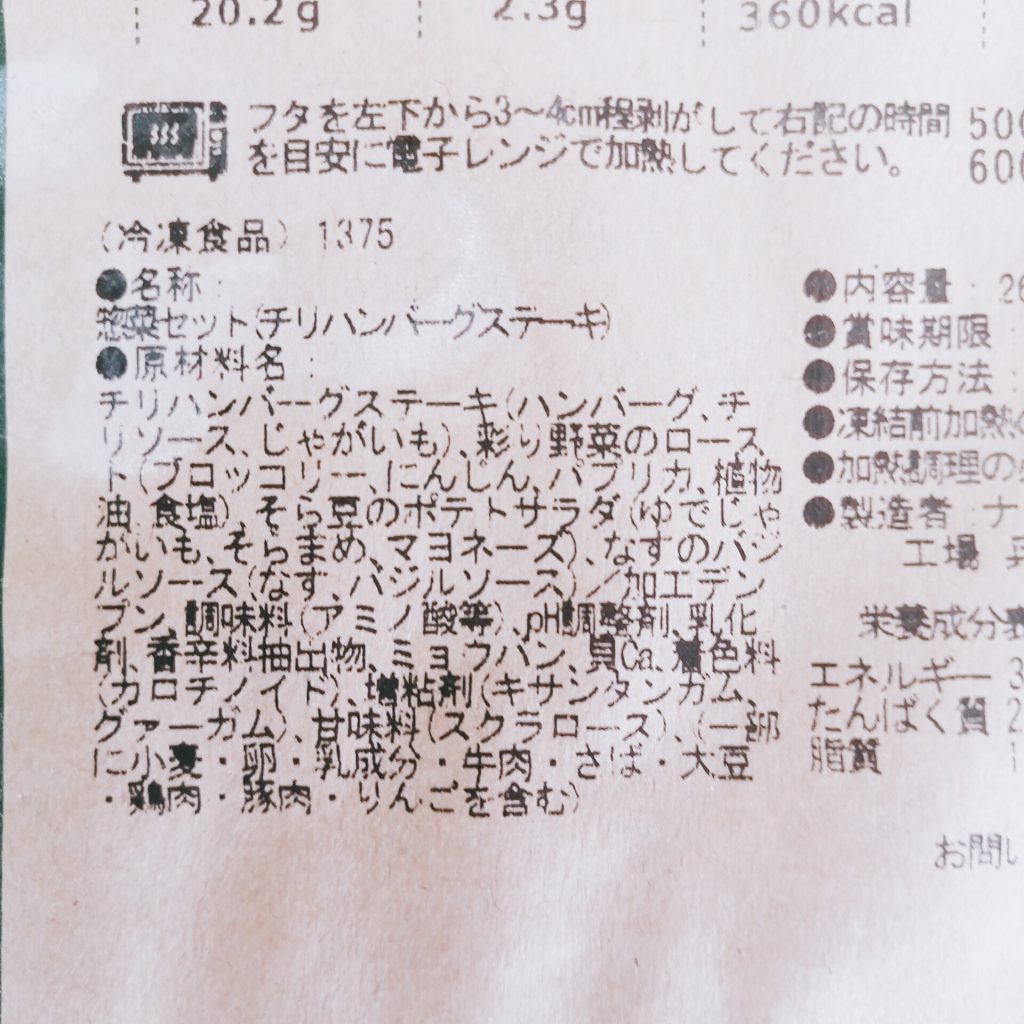 20.2g 2.3g 360kcal
フタを左下から3〜4cm程剥がして右記の時間
を目安に電子レンジで加熱してください。
(冷凍食品) 1375
●名称:
惣菜セット(チリハンバーグステーキ)
●原材料名:
チリハンバーグステーキ(ハンバーグ、チ
リソース、じゃがいも)、彩り野菜のロース
ト(ブロッコリー、にんじん、パプリカ、植物
油、食塩)、そら豆のポテトサラダ(ゆでじゃ
がいも、そらまめ、マヨネーズ)、なすのバジ
ルソース(なす、バジルソース)/加工デン
プン、調味料(アミノ酸等)、pH調整剤、乳化
剤、香辛料抽出物、ミョウバン、貝Ca、着色料
(カロチノイド)、増粘剤(キサンタンガム、
グァーガム)、甘味料(スクラロース)、(一部
に小麦・卵・乳成分・牛肉・さば・大豆
・鶏肉・豚肉・りんごを含む)
●内容量:
●賞味期限
●保存方法:
●凍結前加熱
●加熱調理の
●製造者:ナ
工場
栄養成分表
エネルギー
たんぱく質
脂質
お問い